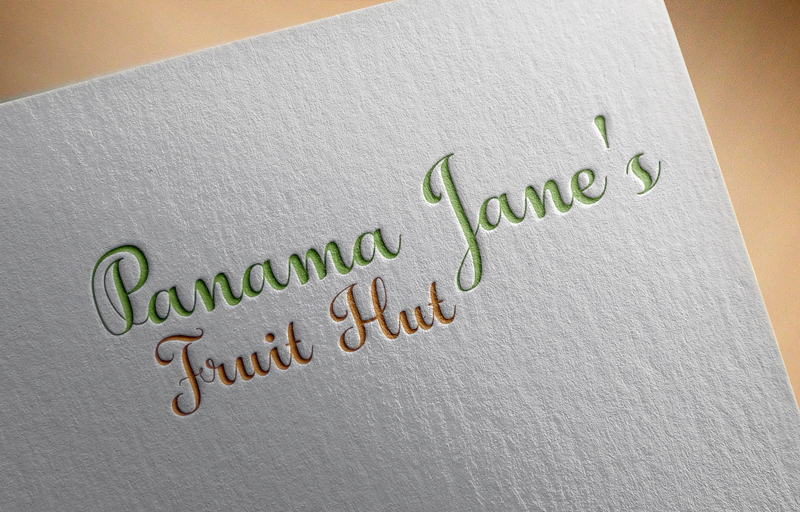 Panama Jane's
Fruit Hut